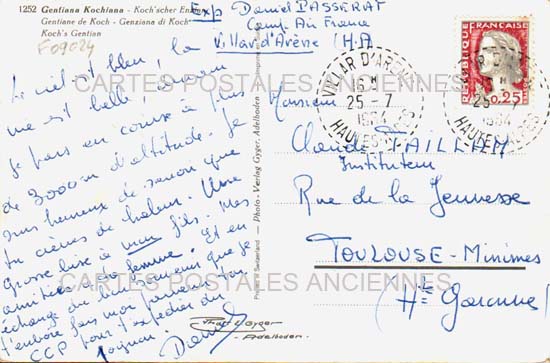 1252 Gentiana Kochiana - Koch'scher Enzian
Gentiane de Koch - Genziana di Koch
Koch's Gentian
F09024
Exp Daniel PASSERAT
Camp Air France
Villar d'Arène (H.A.
Le ciel est bleu, la
vue est belle!
Je pars en course à plus
de 3000m d'altitude. Je
suis heureux de savoir que
tu crèves de chaleur. Une
grosse bise à mon fils. Mes
amitiés à ta femme. Et en
échange du
t'enlever
CCP pour l'expédition du
Photo - Verlag Gyger, Adelboden
Printed in Switzerland
Phot Gyger
Adelboden
VILLAR D'ARENE
16 H
25-7
1964
HAUTES ALPES
REPUBLIQUE FRANCAISE
0,25
Monsieur
Claude TAILLEM
Instituteur
Rue de la Jeunesse
TOULOUSE-Minimes
(Hte Garonne)
CARTES POSTALES ANCIENNES
CARTES POSTALES ANCIENNES